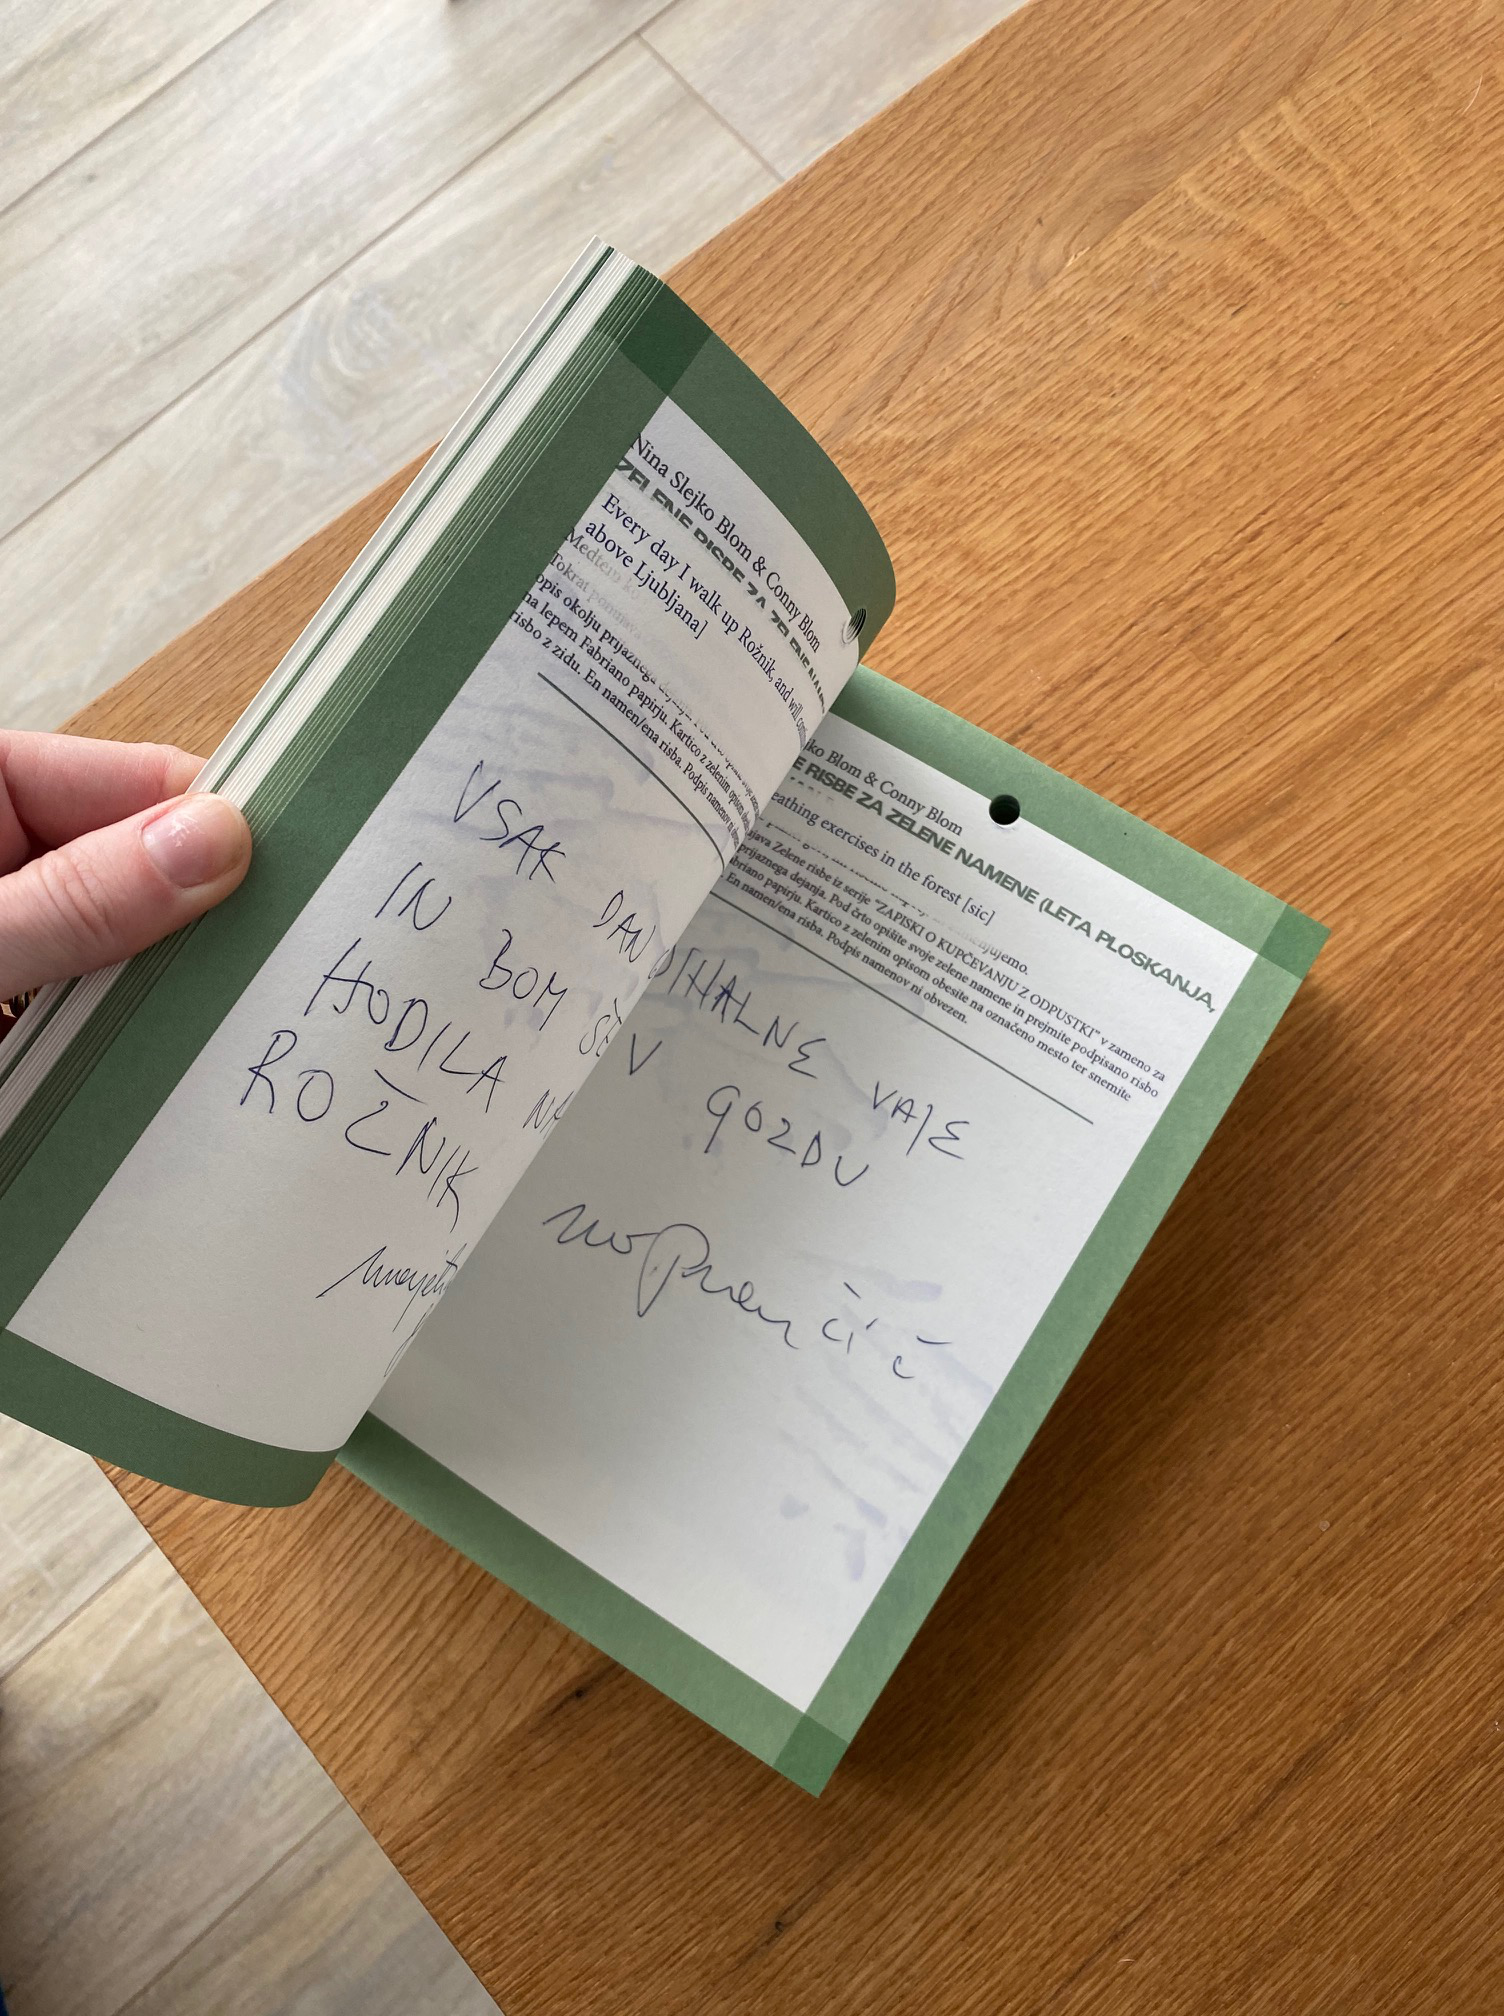 Nina Slejko Blom & Conny Blom
ZELENE RISBE ZA ZELENE
Every day I walk up Rožnik, and will
above Ljubljana]
Medtem
Tokrat
opis okolju prijaznega
na lepem Fabriano papirju. Kartico z zelenim opisom
risbo z zidu. En namen/ena risba. Podpis namenov ni
VSAK DAN
IN BOM ŠE
HODILA NA
ROŽNIK
ko Blom & Conny Blom
E RISBE ZA ZELENE NAMENE (LETA PLOSKANJA,
eathing exercises in the forest [sic]
java Zelene risbe iz serije "ZAPISKI O KUPČEVANJU Z ODPUSTKI" v zameno za
prijaznega dejanja. Pod črto opišite svoje zelene namene in prejmite podpisano risbo
briano papirju. Kartico z zelenim opisom obesite na označeno mesto ter snemite
En namen/ena risba. Podpis namenov ni obvezen.
DIHALNE VAJE
V GOZDU